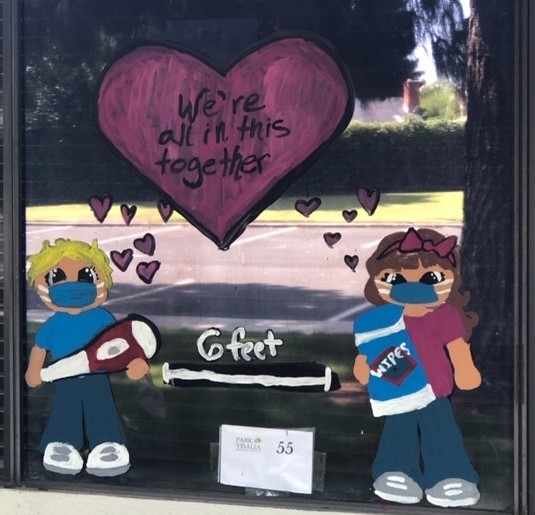 We're
all in this
together
6 feet
WIPES
PARK
VISALIA
55